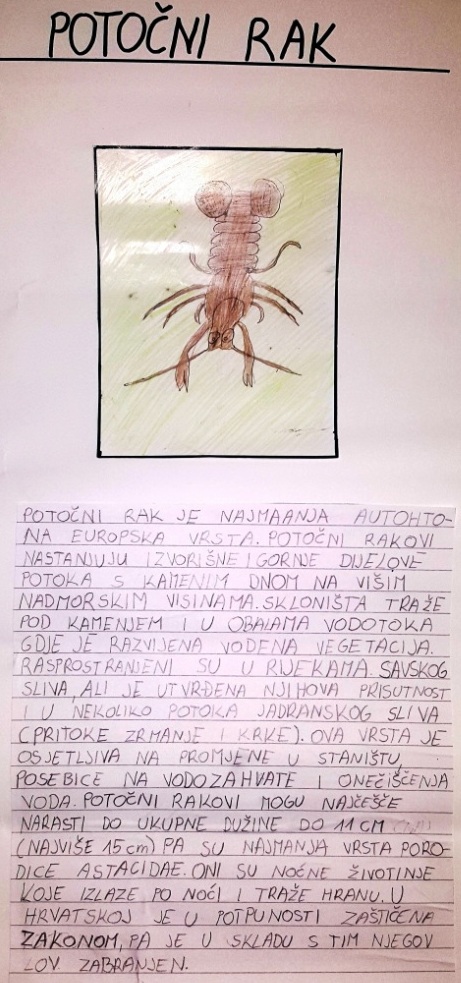 POTOČNI RAK
POTOČNI RAK JE NAJMAANJA AUTOHTO-
NA EUROPSKA VRSTA. POTOČNI RAKOVI
NASTANJUJU IZVORIŠNE I GORNJE DIJELOVE
POTOKA S KAMENIM DNOM NA VIŠIM
NADMORSKIM VISINAMA. SKLONIŠTA TRAŽE
POD KAMENJEM I U OBALAMA VODOTOKA
GDJE JE RAZVIJENA VODENA VEGETACIJA.
RASPROSTRANJENI SU U RIJEKAMA. SAVSKOG
SLIVA, ALI JE UTVRĐENA NJIHOVA PRISUTNOST
I U NEKOLIKO POTOKA JADRANSKOG SLIVA
(PRITOKE ZRMANJE I KRKE). OVA VRSTA JE
OSJETLJIVA NA PROMJENE U STANIŠTU,
POSEBICE NA VODOZAHVATE I ONEČIŠĆENJA
VODA. POTOČNI RAKOVI MOGU NAJČEŠĆE
NARASTI DO UKUPNE DUŽINE DO 11 CM
(NAJVIŠE 15 cm) PA SU NAJMANJA VRSTA PORO-
DICE ASTACIDAE. ONI SU NOĆNE ŽIVOTINJE
KOJE IZLAZE PO NOĆI I TRAŽE HRANU. U
HRVATSKOJ JE U POTPUNOSTI ZAŠTIČENA
ZAKONOM, PA JE U SKLADU S TIM NJEGOV
LOV ZABRANJEN.